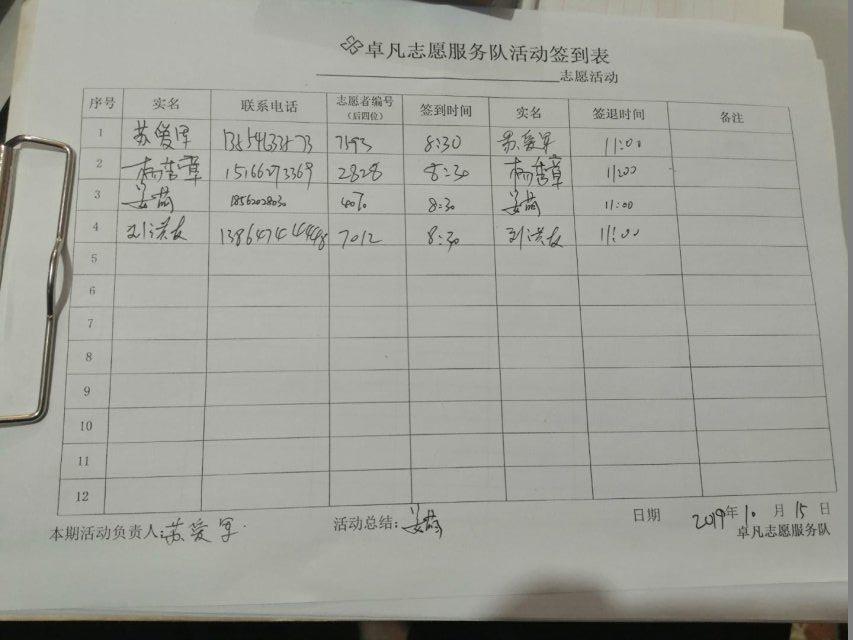 卓凡志愿服务队活动签到表
志愿活动
序号 实名 联系电话 志愿者编号（后四位） 签到时间 实名 签退时间 备注
1 苏爱军 7193 8:30 苏爱军 11:00
2 杨 15166273369 2828 8:30 杨 11:00
3 姜 18562028030 8:30 姜 11:00
4 刘洪友 7012 8:30 刘洪友 11:00
5
6
7
8
9
10
11
12
本期活动负责人:苏爱军 活动总结:姜 日期 2019年10月15日
卓凡志愿服务队